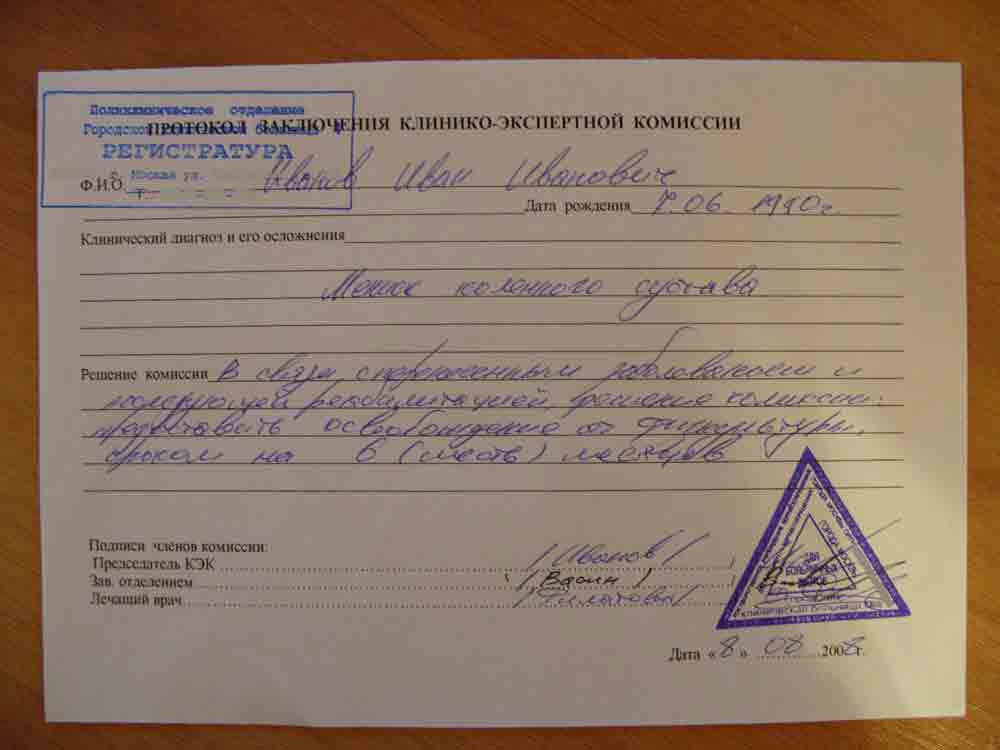 Поликлиническое отделение
Городской
РЕГИСТРАТУРА
г. Москва ул.
ПРОТОКОЛ ЗАКЛЮЧЕНИЯ КЛИНИКО-ЭКСПЕРТНОЙ КОМИССИИ
Ф.И.О. Иванов Иван Иванович
Дата рождения 7.06 1990г.
Клинический диагноз и его осложнения
коленного сустава
Решение комиссии В связи с перенесенным заболеванием и
реабилитацией, решение комиссии:
предоставить освобождение от физкультуры,
сроком на 6 (шесть) месяцев
Подписи членов комиссии:
Председатель КЭК / Иванов /
Зав. отделением ( Васин )
Лечащий врач / Филатова /
ГОРОДА МОСКВЫ
ДЛЯ
БОЛЬНИЧНЫХ
ЛИСТОВ
КЛИНИЧЕСКАЯ БОЛЬНИЦА
Дата «8» 08 2008г.